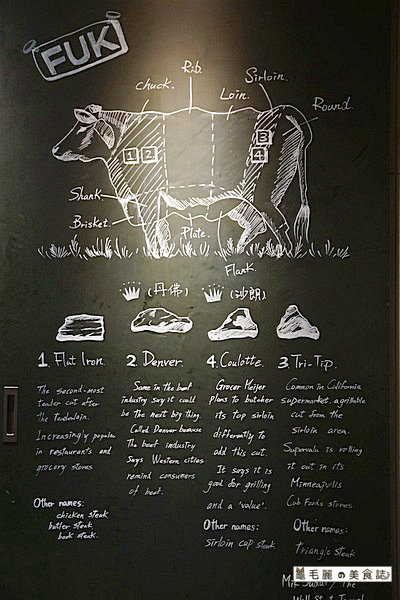 FUK
Rib.
chuck.
Sirloin.
Loin.
Round.
1 2
3
4
Shank
Brisket.
Plate.
Flank.
(丹佛)
(沙朗)
1. Flat Iron.
The second-most
tender cut after
the
Increasingly popular
in restaurants and
grocery stores
Other names:
chicken steak
butler steak
book steak.
2. Denver.
Some in the beef
industry say it could
be the next big thing.
Called Denver because
The beef industry
says Western cities
remind consumers
of beef.
4. Coulotte.
Grocer Meijer
plans to butcher
its top sirloin
differently to
add this cut.
It says it is
good for grilling
and a 'value'.
Other names:
sirloin cap steak
3. Tri-Tip.
Common in California
supermarket. a grillable
cut from the
sirloin area.
Supervalu is rolling
it out in its
Minneapolis
Cub Foods stores.
Other names:
Triangle steak
毛麗の美食誌
The